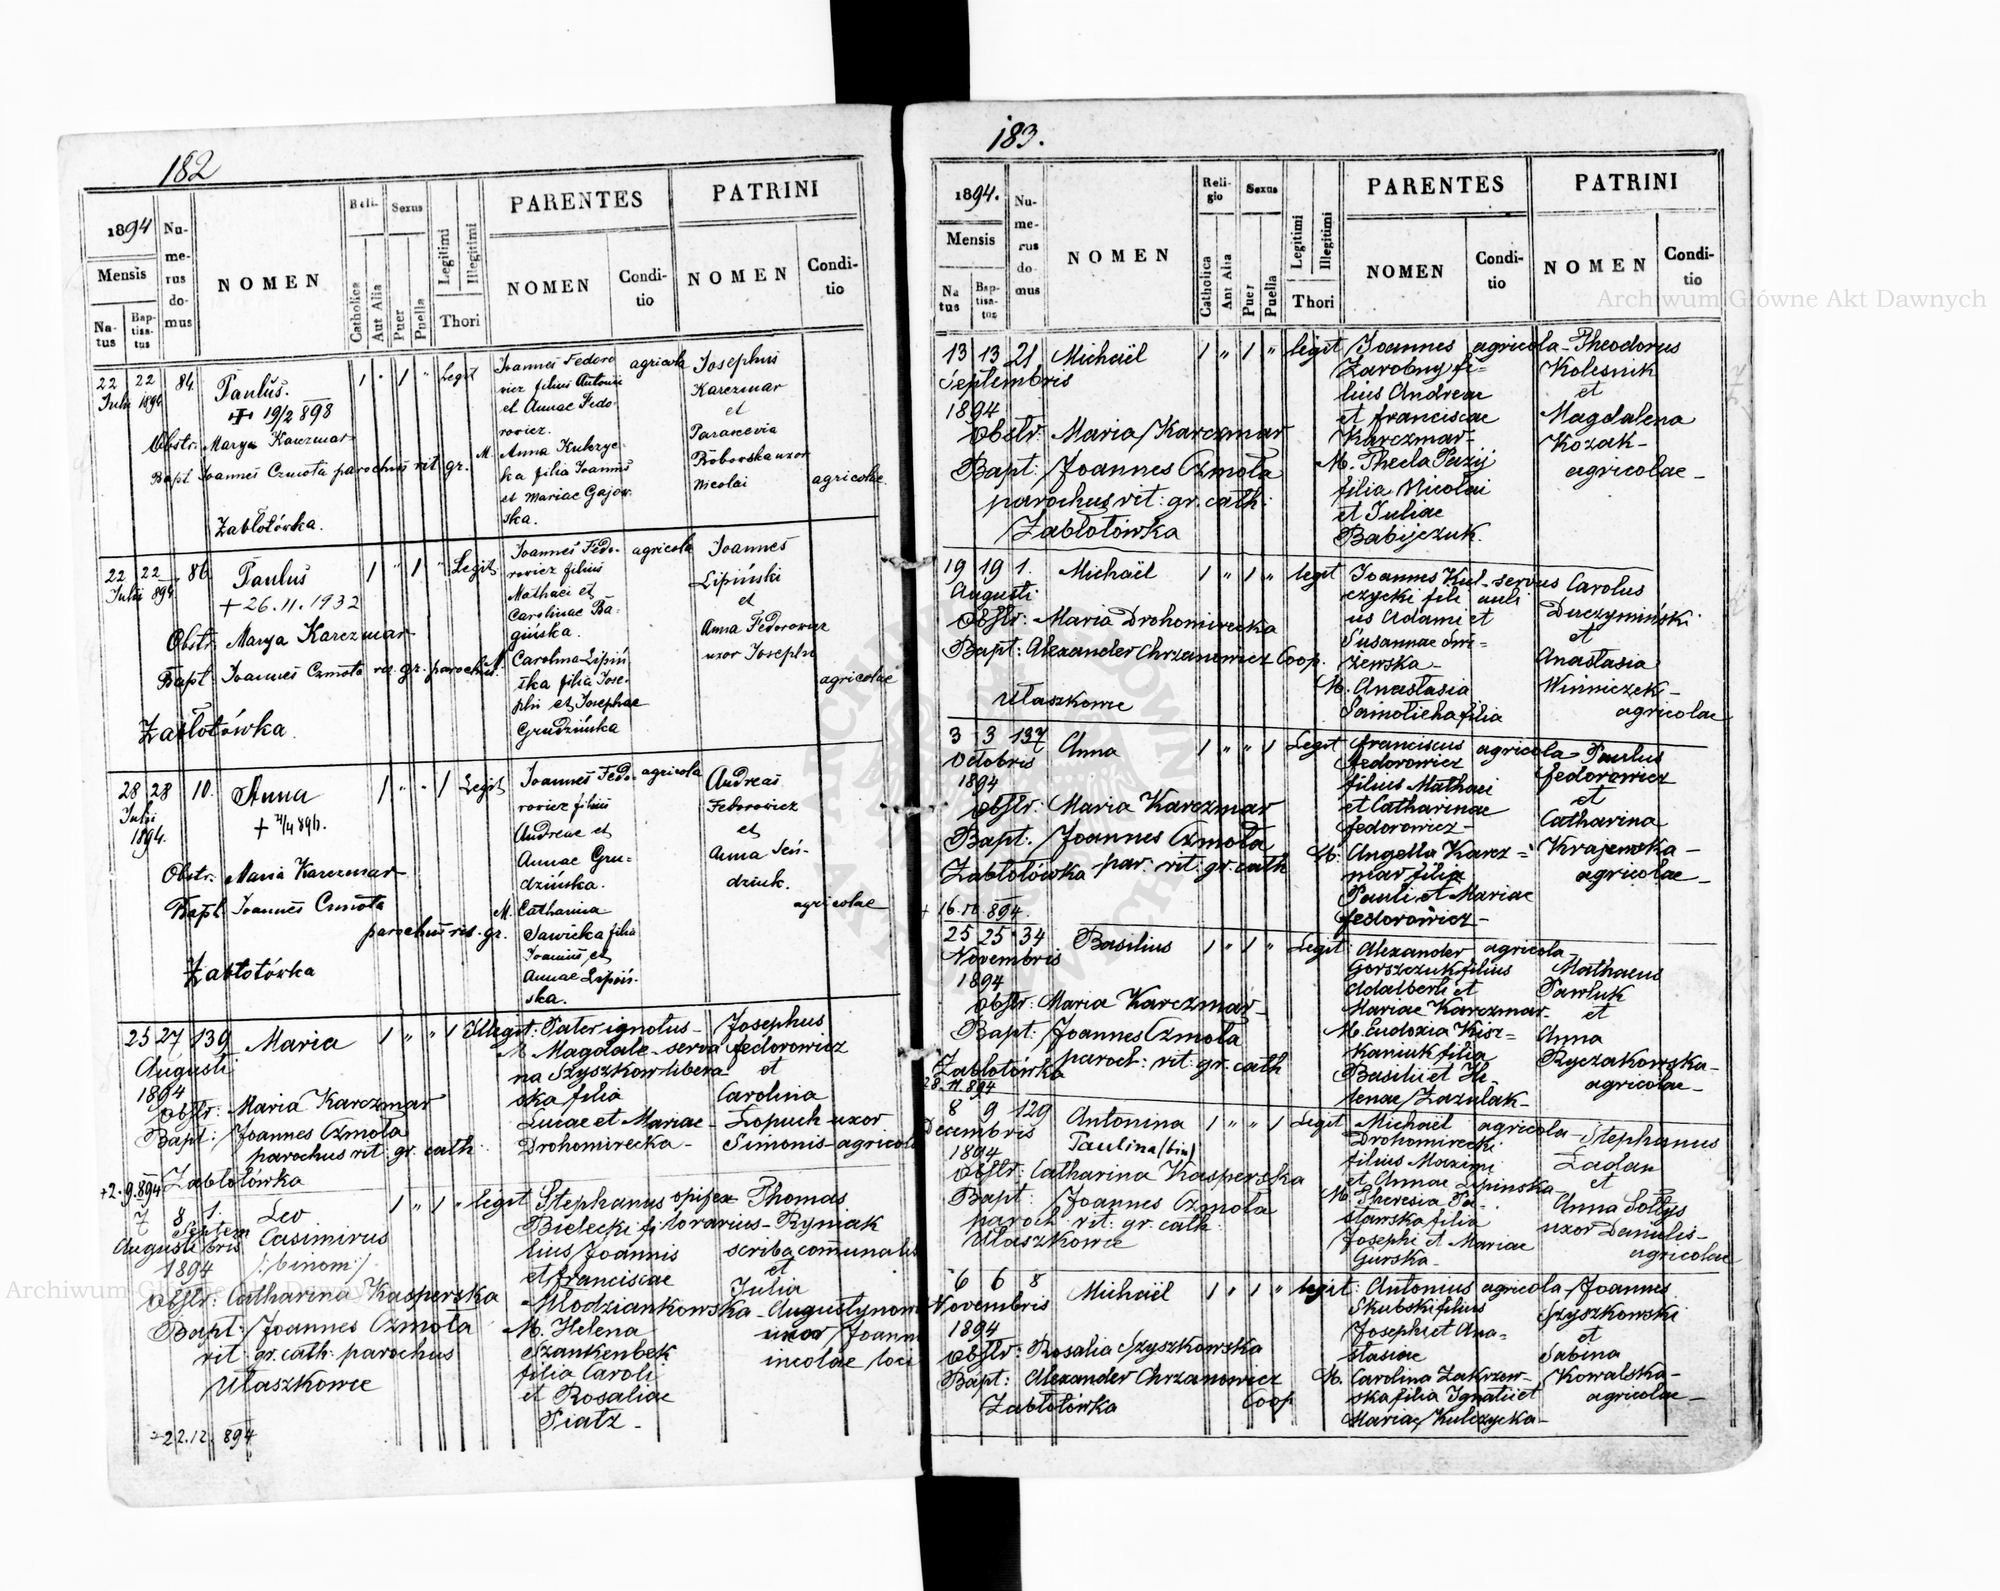 182
1894
Mensis
Na-
tus
Bap-
tisa-
tus
Nu-
me-
rus
do-
mus
NOMEN
Reli-
Catholica
Aut Alia
Sexus
Puer
Puella
Legitimi
Illegitimi
Thori
PARENTES
NOMEN
Condi-
tio
PATRINI
NOMEN
Condi-
tio
22 22 84. Paulus. 1 " 1 " Legit
Julii 1894
19/2 898
Obstr. Marya Karczmar
Bapt Joannes Czmoła parochus rit. gr.
Zabłotówka.
Joannes Fedoro agricola
wicz filius Antonii
et Annae Fedo-
rowicz.
M. Anna Kulczyc-
ka filia Joannis
et Mariae Gajow-
ska.
Josephus
Karczmar
et
Parascevia
Boborska uxor
Nicolai
agricolae
22 22 86 Paulus 1 " 1 " Legit
Julii 894
+ 26.11.1932
Obstr. Marya Karczmar
Bapt Joannes Czmoła rit. gr. parochus.
Zabłotówka.
Joannes Fedo- agricola
rowicz filius
Mathaei et
Carolinae Ba-
gińska.
M. Carolina Lipiń
ska filia Jose-
phi et Josephae
Grudzińska
Joannes
Lipiński
et
Anna Fedorowicz
uxor Josephi
agricolae
28 28 10. Anna 1 " " 1 Legit
Julii
1894.
Obstr. Maria Karczmar
Bapt Joannes Czmoła
parochus rit. gr.
Zabłotówka
Joannes Fedo- agricola
rowicz filius
Andreae et
Annae Gru-
dzińska.
M. Catharina
Sawicka filia
Joannis et
Annae Lipiń-
ska.
Andreas
Fedorowicz
et
Anna Seń-
dziuk.
agricolae
25 27 139 Maria 1 " " 1 Illegit:
Augusti
1894
Obstr: Maria Karczmar
Bapt: Joannes Czmoła
parochus rit. gr. cath:
Zabłotówka
+2.9.894
Pater ignotus-
M. Magdale- serva
na Szyszkow libera
ska filia
Lucae et Mariae-
Drohomirecka-
Josephus
Fedorowicz
et
Carolina
Łopuch uxor
Simonis-agricola
7 8 1. Leo 1 " 1 " legit
Septem
Augusti bris Casimirus
1894 /:binom:/
Obstr: Catharina Kasperska
Bapt: Joannes Czmoła
rit: gr. cath: parochus
Ułaszkowce
22.12.894
Stephanus opifex
Bielecki fi lorarius-
lius Joannis
et Franciscae
Młodziankowska-
M. Helena
Szankenbek
filia Caroli
et Rosaliae
Piatz-
Thomas
Rymak
scriba comunalis
et
Julia
Augustynow
uxor Joann
incolae loci
183.
1894.
Mensis
Na
tus
Bap-
tisa-
tus
Nu-
me-
rus
do-
mus
NOMEN
Reli-
gio
Catholica
Aut Alia
Sexus
Puer
Puella
Legitimi
Illegitimi
Thori
PARENTES
NOMEN
Condi-
tio
PATRINI
NOMEN
Condi-
tio
13 13 21 Michaël 1 " 1 " legit
Septembris
1894
Obstr: Maria Karczmar
Bapt: Joannes Czmoła
parochus rit: gr: cath:
Zabłotówka
Joannes agricola-
Zarobny fi-
lius Andreae
et Franciscae
Karczmar-
M. Thecla Pazij
filia Nicolai
et Juliae
Babijczuk.
Theodorus
Kolesnik
et
Magdalena
Kozak-
agricolae-
19 19 1. Michaël 1 " 1 " legit
Augusti
Obstr: Maria Drohomirecka
Bapt: Alexander Chrzanowicz Coop.
Ułaszkowce
Joannes Kul- servus
czycki fili auli
us Adami et
Susannae Swi-
żewska-
M. Anastasia
Samolicha filia
Carolus
Duczymiński
et
Anastasia
Winniczek-
agricolae
3 3 137 Anna 1 " " 1 Legit
Octobris
1894
Obstr: Maria Karczmar
Bapt: Joannes Czmoła
Zabłotówka par: rit: gr. cath
+ 16.10.894.
Franciscus agricola-
Fedorowicz
filius Mathaei
et Catharinae
Fedorowicz-
M. Angella Karcz-
mar filia
Pauli et Mariae
Fedorowicz-
Paulus
Fedorowicz
et
Catharina
Krajewska-
agricolae-
25 25 34 Basilius 1 " 1 " Legit
Novembris
1894
Obstr: Maria Karczmar-
Bapt: Joannes Czmoła
Zabłotówka paroch: rit: gr. cath
28.11.894
Alexander agricola
Gorszczuk filius
Adalberti et
Mariae Karczmar-
M. Eudoxia Kisz-
kaniuk filia
Basilii et He-
lenae Zazulak-
Mathaeus
Pawluk
et
Anna
Ryczakowska-
agricolae-
8 9 129 Antonina 1 " " 1 Legit
Decembris Paulina (bin)
1894
Obstr: Catharina Kasperska
Bapt: Joannes Czmoła
paroch: rit: gr. cath:
Ułaszkowce
Michaël agricola-
Drohomirecki
filius Maximi
et Annae Lipinska
M. Theresia Pa-
sławska filia
Josephi et Mariae
Gurska-
Stephanus
Zadan
et
Anna Sołtys
uxor Danielis-
agricolae
6 6 8 Michaël 1 " 1 " legit:
Novembris
1894
Obstr: Rosalia Szyszkowska
Bapt: Alexander Chrzanowicz
Zabłotówka Coop
Antonius agricola
Skubski filius
Josephi et Ana-
stasiae
M. Carolina Zakrzew-
ska filia Ignatii et
Mariae Kulczycka-
Joannes
Szyszkowski
et
Sabina
Kowalska-
agricolae-
Archiwum Główne Akt Dawnych
Archiwum Główne Akt Dawnych